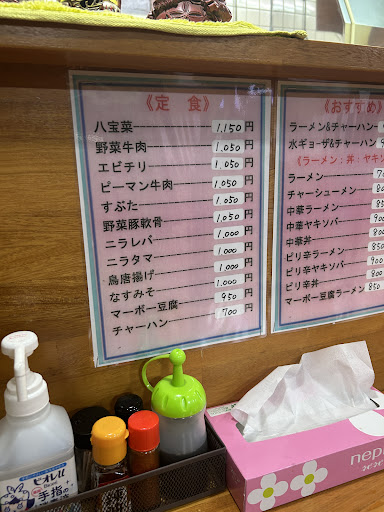 《定 食》
八宝菜 1,150円
野菜牛肉 1,050円
エビチリ 1,050円
ピーマン牛肉 1,050円
すぶた 1,050円
野菜豚軟骨 1,050円
ニラレバ 1,000円
ニラタマ 1,000円
鳥唐揚げ 1,000円
なすみそ 950円
マーボー豆腐 950円
チャーハン 700円
《おすすめ》
ラーメン&チャーハン
水ギョーザ&チャーハン
《ラーメン:丼:ヤキソ
ラーメン
チャーシューメン
中華ラーメン
中華ヤキソバ
中華丼
ピリ辛ラーメン 850
ピリ辛ヤキソバ
ピリ辛丼
マーボー豆腐ラーメン 850
ビオレu
手指の
nep